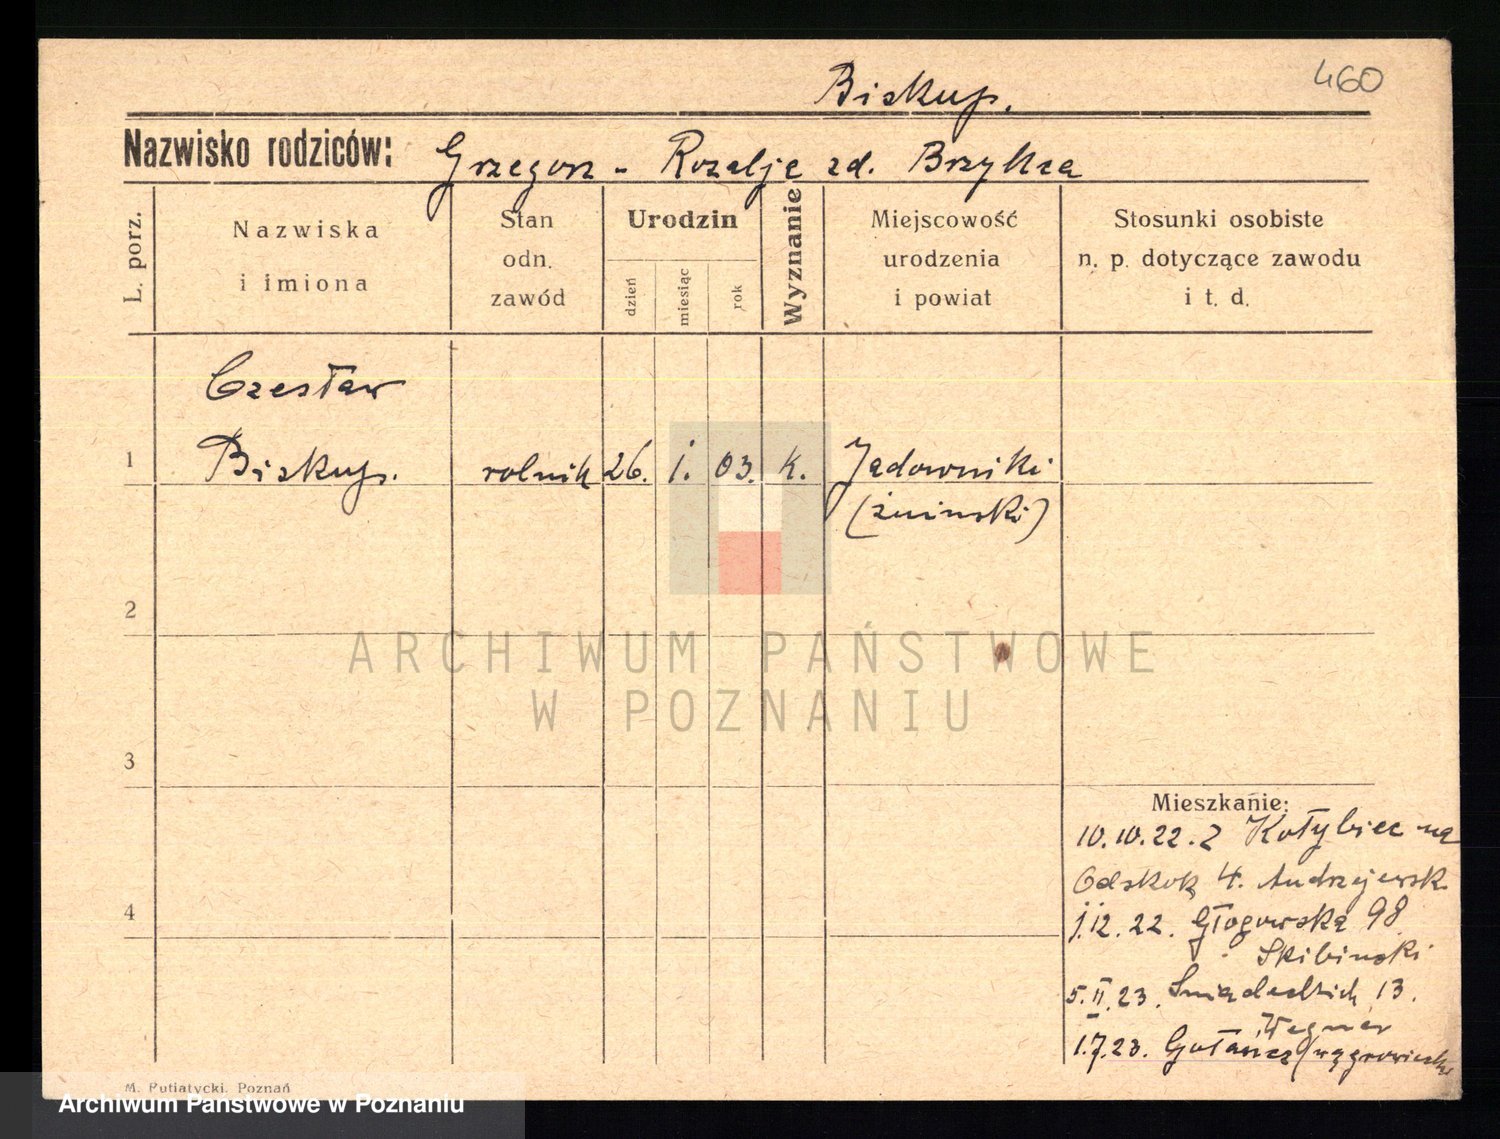 460
Biskup.
Nazwisko rodziców: Grzegorz - Rozalje zd. Brzykca
L. porz.
Nazwiska
i imiona
Stan
odn.
zawód
Urodzin
dzień
miesiąc
rok
Wyznanie
Miejscowość
urodzenia
i powiat
Stosunki osobiste
n. p. dotyczące zawodu
i t. d.
Czesław
1 Biskup. rolnik 26. 1. 03. k. Jadowniki
(żninski)
2
ARCHIWUM PAŃSTWOWE
W POZNANIU
3
Mieszkanie:
10.10.22. z Kołybiec na
4. Andrzejewsk
4
1.12.22. Głogowska 98
Skibinski
5.II.23. Sniadeckich 13.
Wegner
1.7.23. Gołańcz (wągrowiecki
M. Putiatycki, Poznań
Archiwum Państwowe w Poznaniu